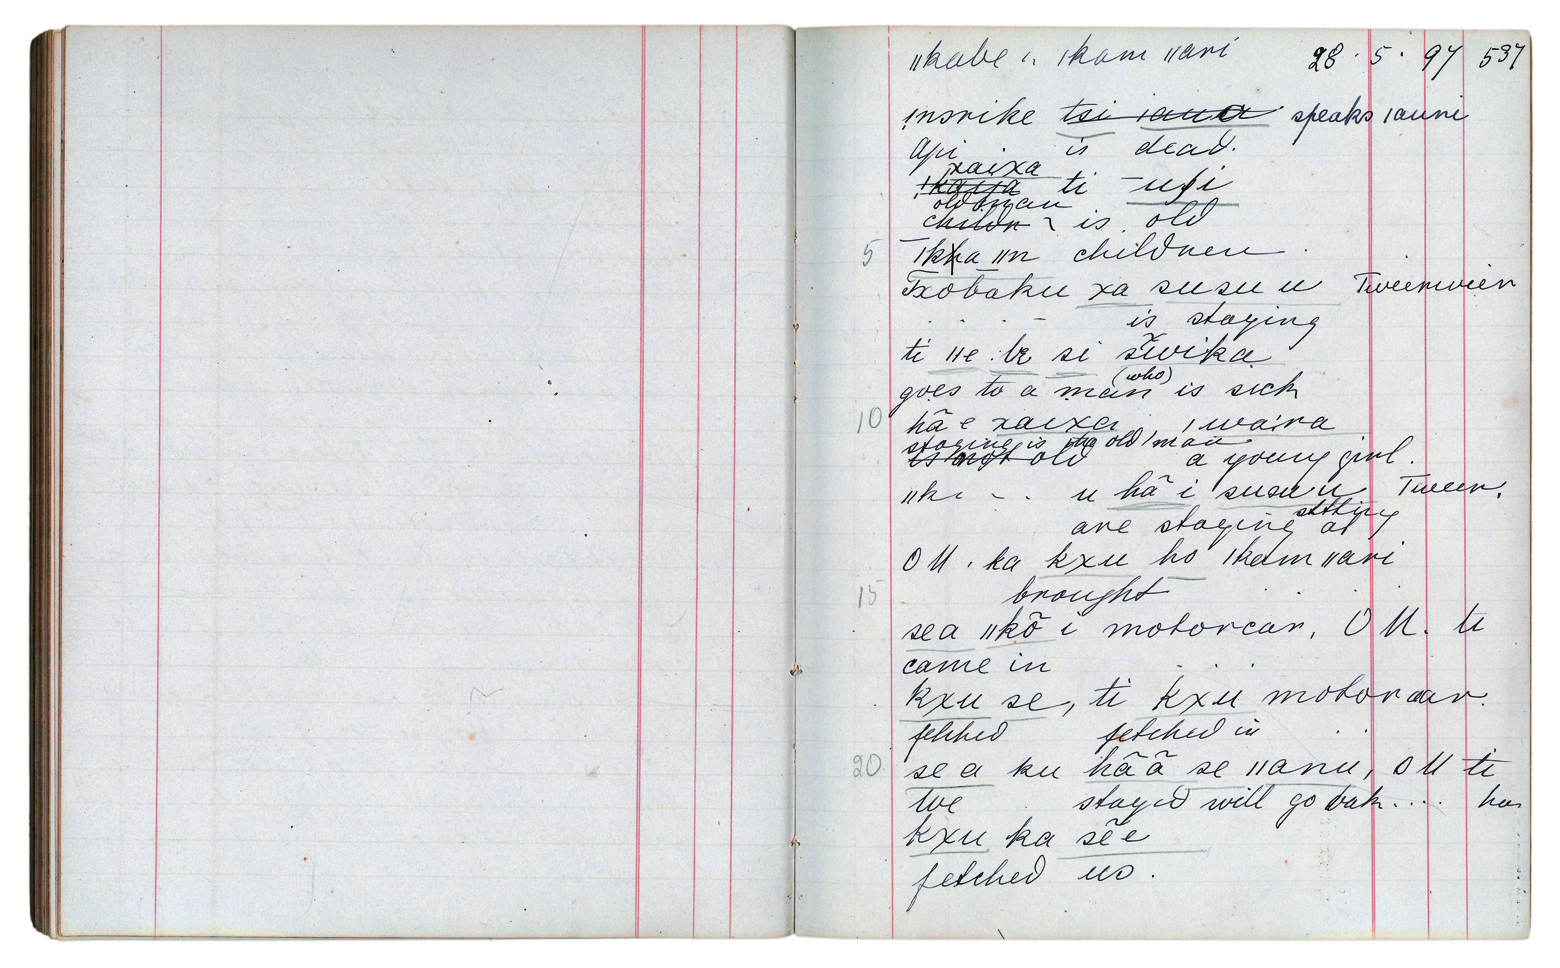 ǁkabe . ǀkam ǁari 28 . 5 . 97 537
tsi ǀaua speaks ǀauni
is dead.
xaixa
ti
old man
childr is old
5 children
xa susu u Tweerivier
is staying
ti ǁe . si
goes to a man (who) is sick
10 hã e xaixa
staying is the old man
is not old a young girl.
ǁk u hã i susu u Tweer.
are staying sitting at
O U . ka kxu ho ǀkam ǁari
15 brought
se a ǁkõ i motorcar, O U. ti
came in
kxu se, ti kxu motorcar.
fetched fetched in
20 se a ku hãã se ǁanu, O U ti
we stayed will go bak.... has
kxu ka sẽe
fetched us.